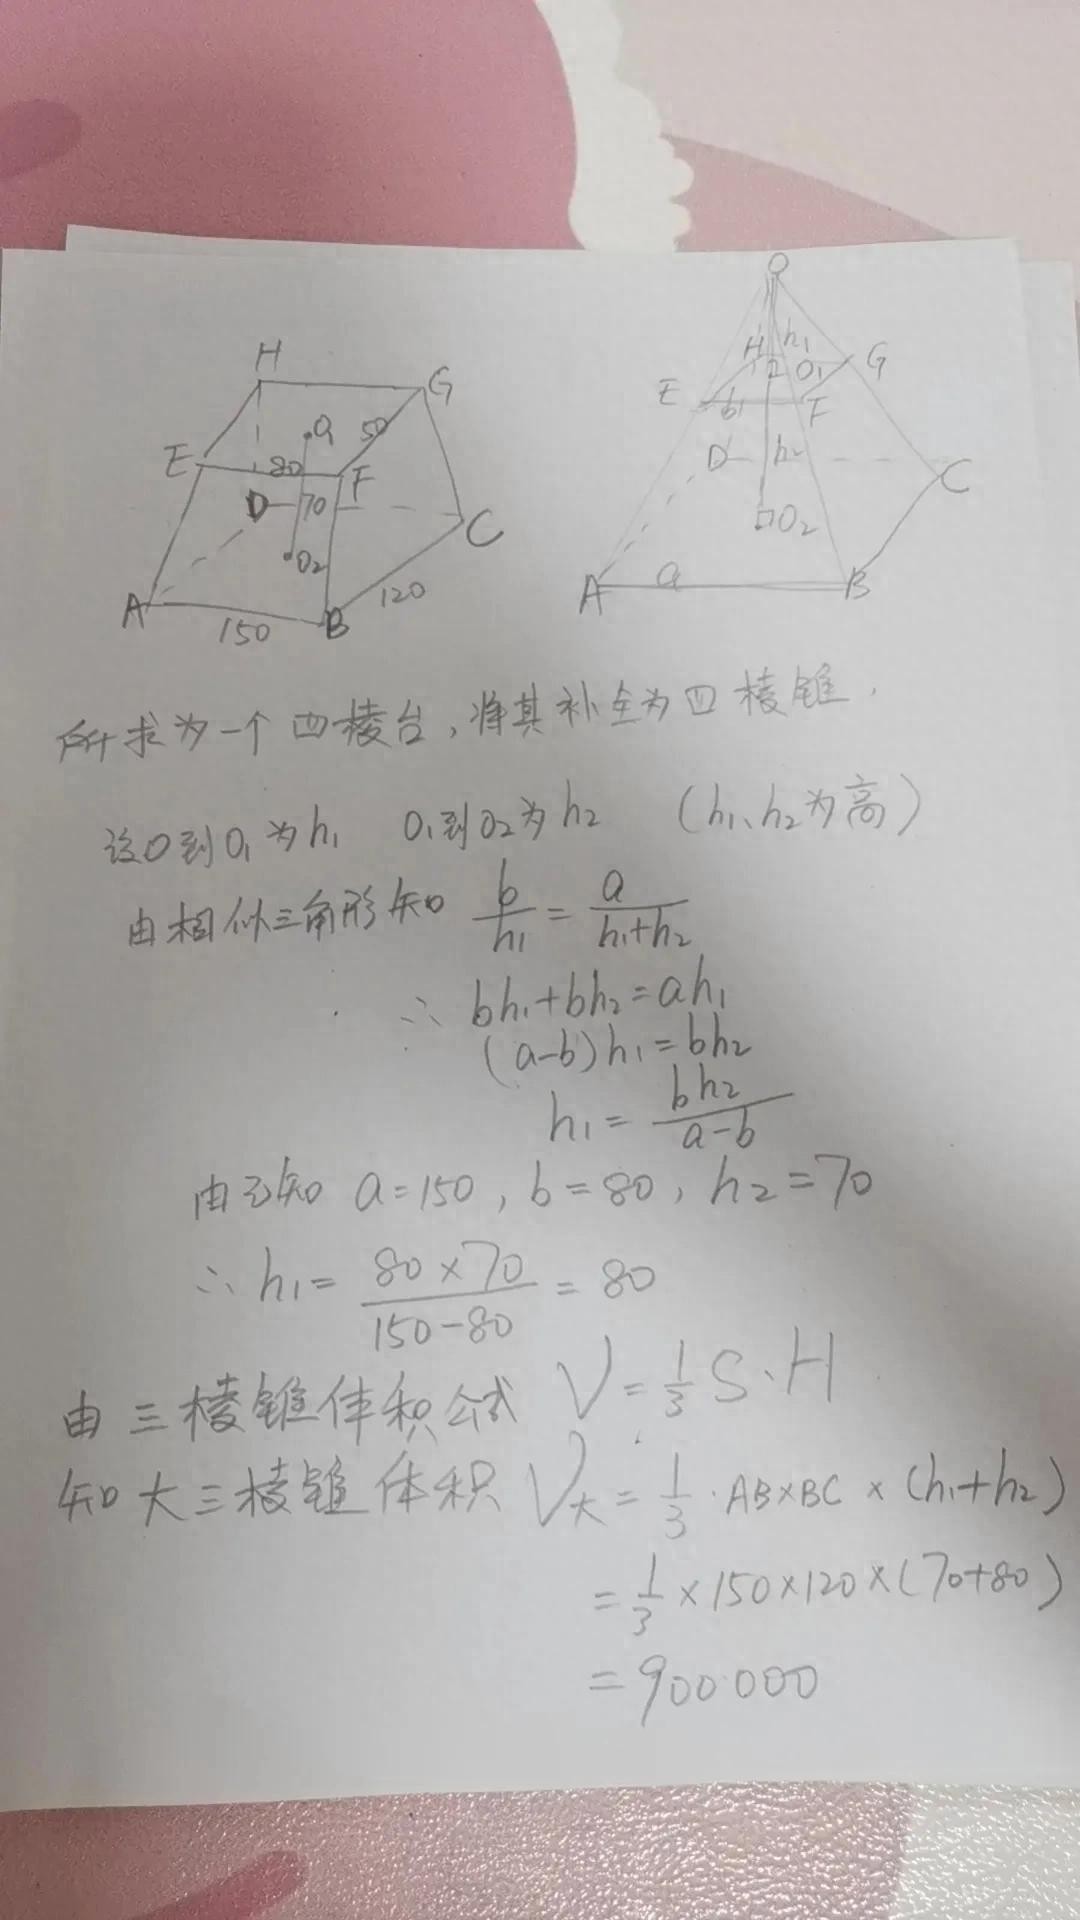 H
G
O₁
50
E
80
F
D
70
C
O₂
A
120
150
B
O
h₁
H
O₁
G
E
b
F
D
h₂
C
O₂
A
a
B
所求为一个四棱台,将其补全为四棱锥.
设O到O₁为h₁ O₁到O₂为h₂ (h₁、h₂为高)
由相似三角形知 b/h₁ = a/(h₁+h₂)
∴ bh₁+bh₂=ah₁
(a-b)h₁=bh₂
h₁= bh₂/(a-b)
由已知 a=150, b=80, h₂=70
∴ h₁= (80×70)/(150-80) = 80
由三棱锥体积公式 V=1/3 S·H
知大三棱锥体积 V大=1/3·AB×BC×(h₁+h₂)
=1/3×150×120×(70+80)
=900000